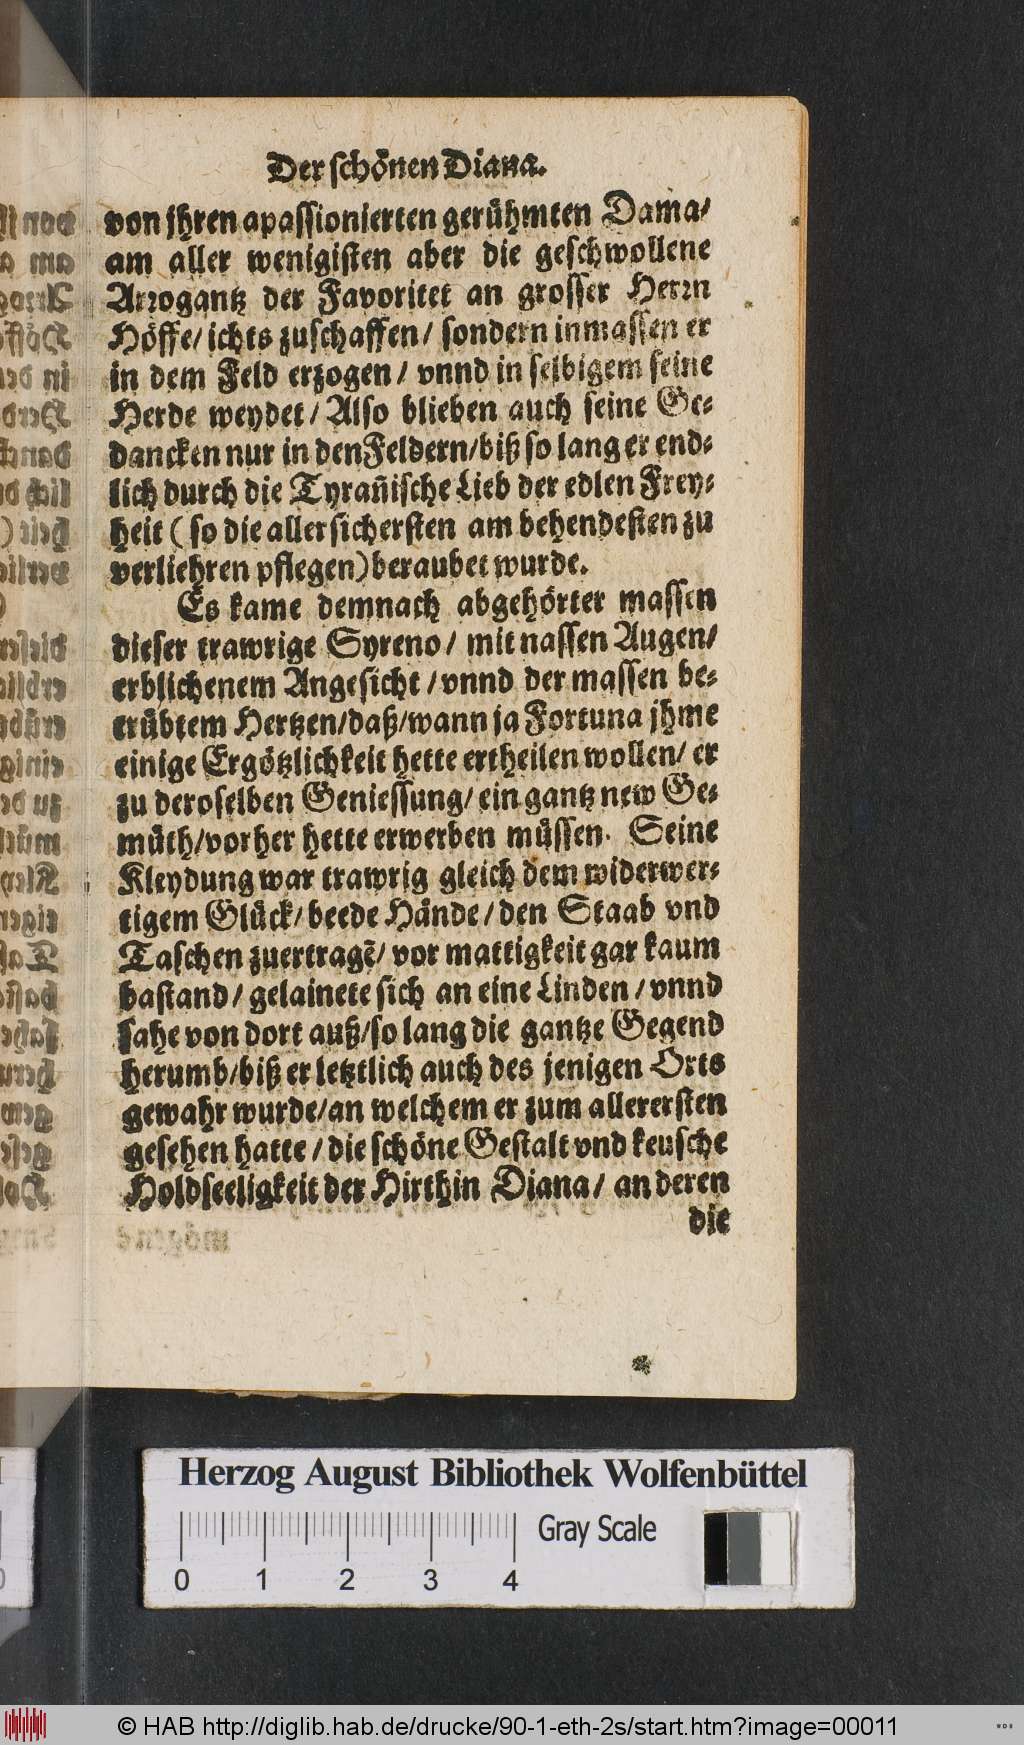 Der schönen Diana.
von jhren apassionierten gerühmten Dama/
am aller wenigisten aber die geschwollene
Arrogantz der Favoritet an grosser Herrn
Höffe/ ichts zuschaffen/ sondern inmassen er
in dem Feld erzogen/ vnnd in selbigem seine
Herde weydet/ Also blieben auch seine Ge-
dancken nur in den Feldern/ biß so lang er end-
lich durch die Tyrañische Lieb der edlen Frey-
heit ( so die allersichersten am behendesten zu
verliehren pflegen) beraubet wurde.
Es kame demnach abgehörter massen
dieser trawrige Syreno/ mit nassen Augen/
erblichenem Angesicht/ vnnd der massen be-
trübtem Hertzen/ daß/ wann ja Fortuna jhme
einige Ergötzlichkeit hette ertheilen wollen/ er
zu deroselben Geniessung/ ein gantz new Ge-
müth/ vorher hette erwerben müssen. Seine
Kleydung war trawrig gleich dem widerwer-
tigem Glück/ beede Hände/ den Staab vnd
Taschen zuertragē/ vor mattigkeit gar kaum
bastand/ gelainete sich an eine Linden/ vnnd
sahe von dort auß/ so lang die gantze Gegend
herumb/ biß er letztlich auch des jenigen Orts
gewahr wurde/ an welchem er zum allerersten
gesehen hatte/ die schöne Gestalt vnd keusche
Holdseeligkeit der Hirthin Diana/ an deren
die
Herzog August Bibliothek Wolfenbüttel
Gray Scale
0 1 2 3 4
© HAB http://diglib.hab.de/drucke/90-1-eth-2s/start.htm?image=00011